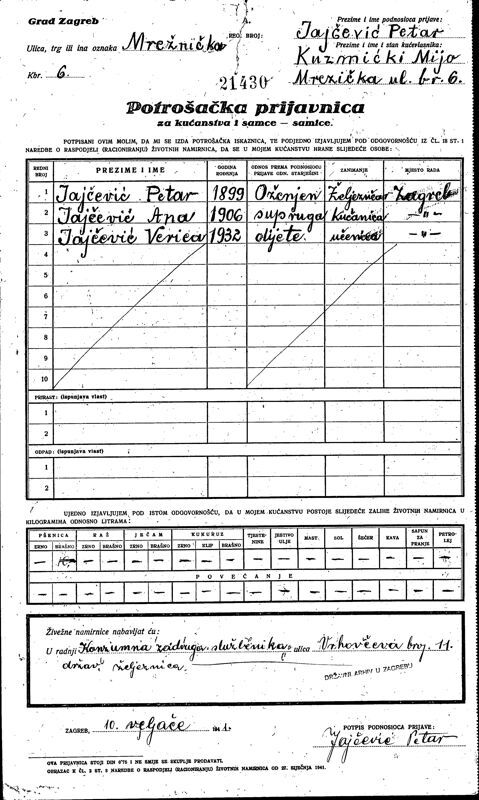 Grad Zagreb
Ulica, trg ili ina oznaka Mrežnička
Kbr. 6.
REG. BROJ:
21430
Prezime i ime podnosioca prijave:
Jajčević Petar
Prezime i ime i stan kućevlasnika:
Kuzmićki Mijo
Mrezička ul. br. 6.
Potrošačka prijavnica
za kućanstva i samce — samice.
POTPISANI OVIM MOLIM, DA MI SE IZDA POTROŠAČKA ISKAZNICA, TE PODJEDNO IZJAVLJUJEM POD ODGOVORNOŠĆU IZ ČL. 18 ST. 1
NAREDBE O RASPODJELI (RACIONIRANJU) ŽIVOTNIH NAMIRNICA, DA SE U MOJEM KUĆANSTVU HRANE SLIJEDEĆE OSOBE:
REDNI BROJ PREZIME I IME GODINA ROĐENJA ODNOS PREMA PODNOSIOCU PRIJAVE ODN. STARJEŠINI ZANIMANJE MJESTO RADA
1 Jajčević Petar 1899 Oženjen Željezničar Zagreb
2 Jajčević Ana 1906 supruga kućanica — " —
3 Jajčević Verica 1932 dijete. učenica — " —
4
5
6
7
8
9
10
PRIRAST: (ispunjava vlast)
1
2
OTPAD: (ispunjava vlast)
1
2
UJEDNO IZJAVLJUJEM POD ISTOM ODGOVORNOŠĆU, DA U MOJEM KUĆANSTVU POSTOJE SLIJEDEĆE ZALIHE ŽIVOTNIH NAMIRNICA U
KILOGRAMIMA ODNOSNO LITRAMA:
PŠENICA RAŽ JEČAM KUKURUZ TJESTENINE JESTIVO ULJE MAST SOL ŠEĆER KAVA SAPUN ZA PRANJE PETROLEJ
ZRNO BRAŠNO ZRNO BRAŠNO ZRNO BRAŠNO ZRNO KLIP BRAŠNO
— — — — — — — — — — — — — — — —
POVEĆANJE
— — — — — — — — — — — — — — — — —
Živežne namirnice nabavljat ću:
U radnji Konzumna zadruga službenika ulica Vrhovčeva broj 11.
držav. željeznica.
DRŽAVNI ARHIV U ZAGREBU
ZAGREB, 10. veljače 1941.
POTPIS PODNOSIOCA PRIJAVE:
Jajčević Petar
OVA PRIJAVNICA STOJI DIN 0·75 I NE SMIJE SE SKUPLJE PRODAVATI.
OBRAZAC K ČL. 2 ST. 3 NAREDBE O RASPODJELI (RACIONIRANJU) ŽIVOTNIH NAMIRNICA OD 27. SIJEČNJA 1941.